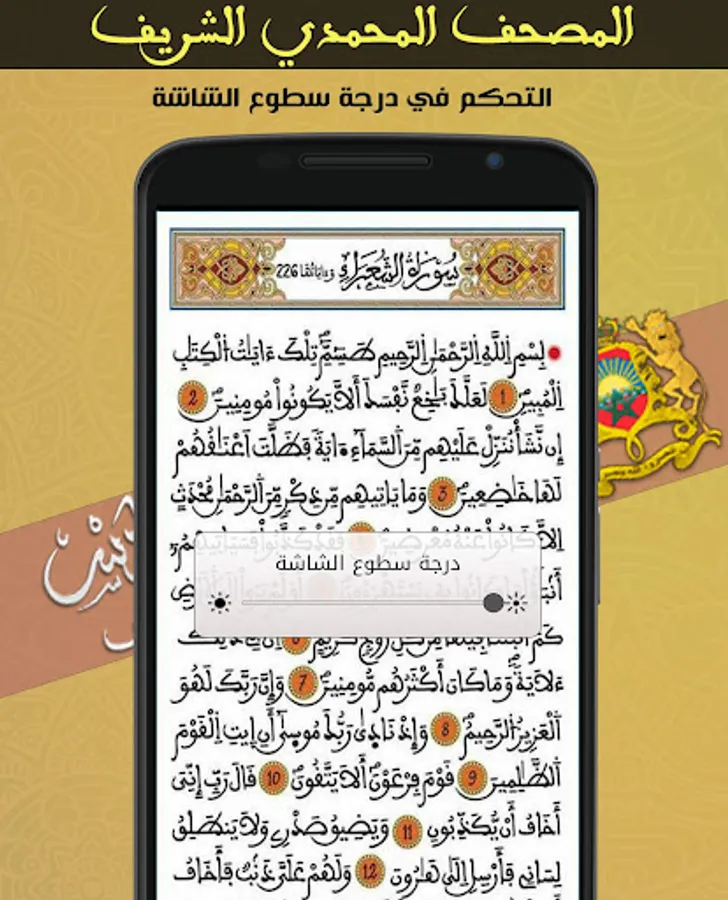 المصحف المحمدي الشريف
التحكم في درجة سطوع الشاشة
سُورَةُ الشُّعَرَاءِ وَءَايَاتُهَا 226
بِسْمِ اِللَّهِ اِلرَّحْمَٰنِ اِلرَّحِيمِ طَسِٓمِّٓ تِلْكَ ءَايَٰتُ اُلْكِتَٰبِ
اِلْمُبِينِ 1 لَعَلَّكَ بَٰخِعٞ نَّفْسَكَ أَلَّا يَكُونُواْ مُومِنِينَ 2
إِن نَّشَأْ نُنَزِّلْ عَلَيْهِم مِّنَ اَلسَّمَآءِ ا۟يَةٗ فَظَلَّتَ اَعْنَٰقُهُمْ
لَهَا خَٰضِعِينَ 3 وَمَا يَاتِيهِم مِّن ذِكْرٖ مِّنَ اَلرَّحْمَٰنِ مُحْدَثٍ
درجة سطوع الشاشة
ءَلَايَةٗ وَمَا كَانَ أَكْثَرُهُم مُّومِنِينَ 7 وَإِنَّ رَبَّكَ لَهُوَ
اَلْعَزِيزُ اُلرَّحِيمُ 8 وَإِذْ نَادَىٰ رَبُّكَ مُوسَىٰٓ أَنِ اِيتِ اِلْقَوْمَ
اَلظَّٰلِمِينَ 9 قَوْمَ فِرْعَوْنَ أَلَا يَتَّقُونَ 10 قَالَ رَبِّ إِنِّيَ
أَخَافُ أَنْ يُّكَذِّبُونِ 11 وَيَضِيقُ صَدْرِي وَلَا يَنطَلِقُ
لِسَانِي فَأَرْسِلِ اِلَىٰ هَٰرُونَ 12 وَلَهُمْ عَلَيَّ ذَنۢبٞ فَأَخَافُ